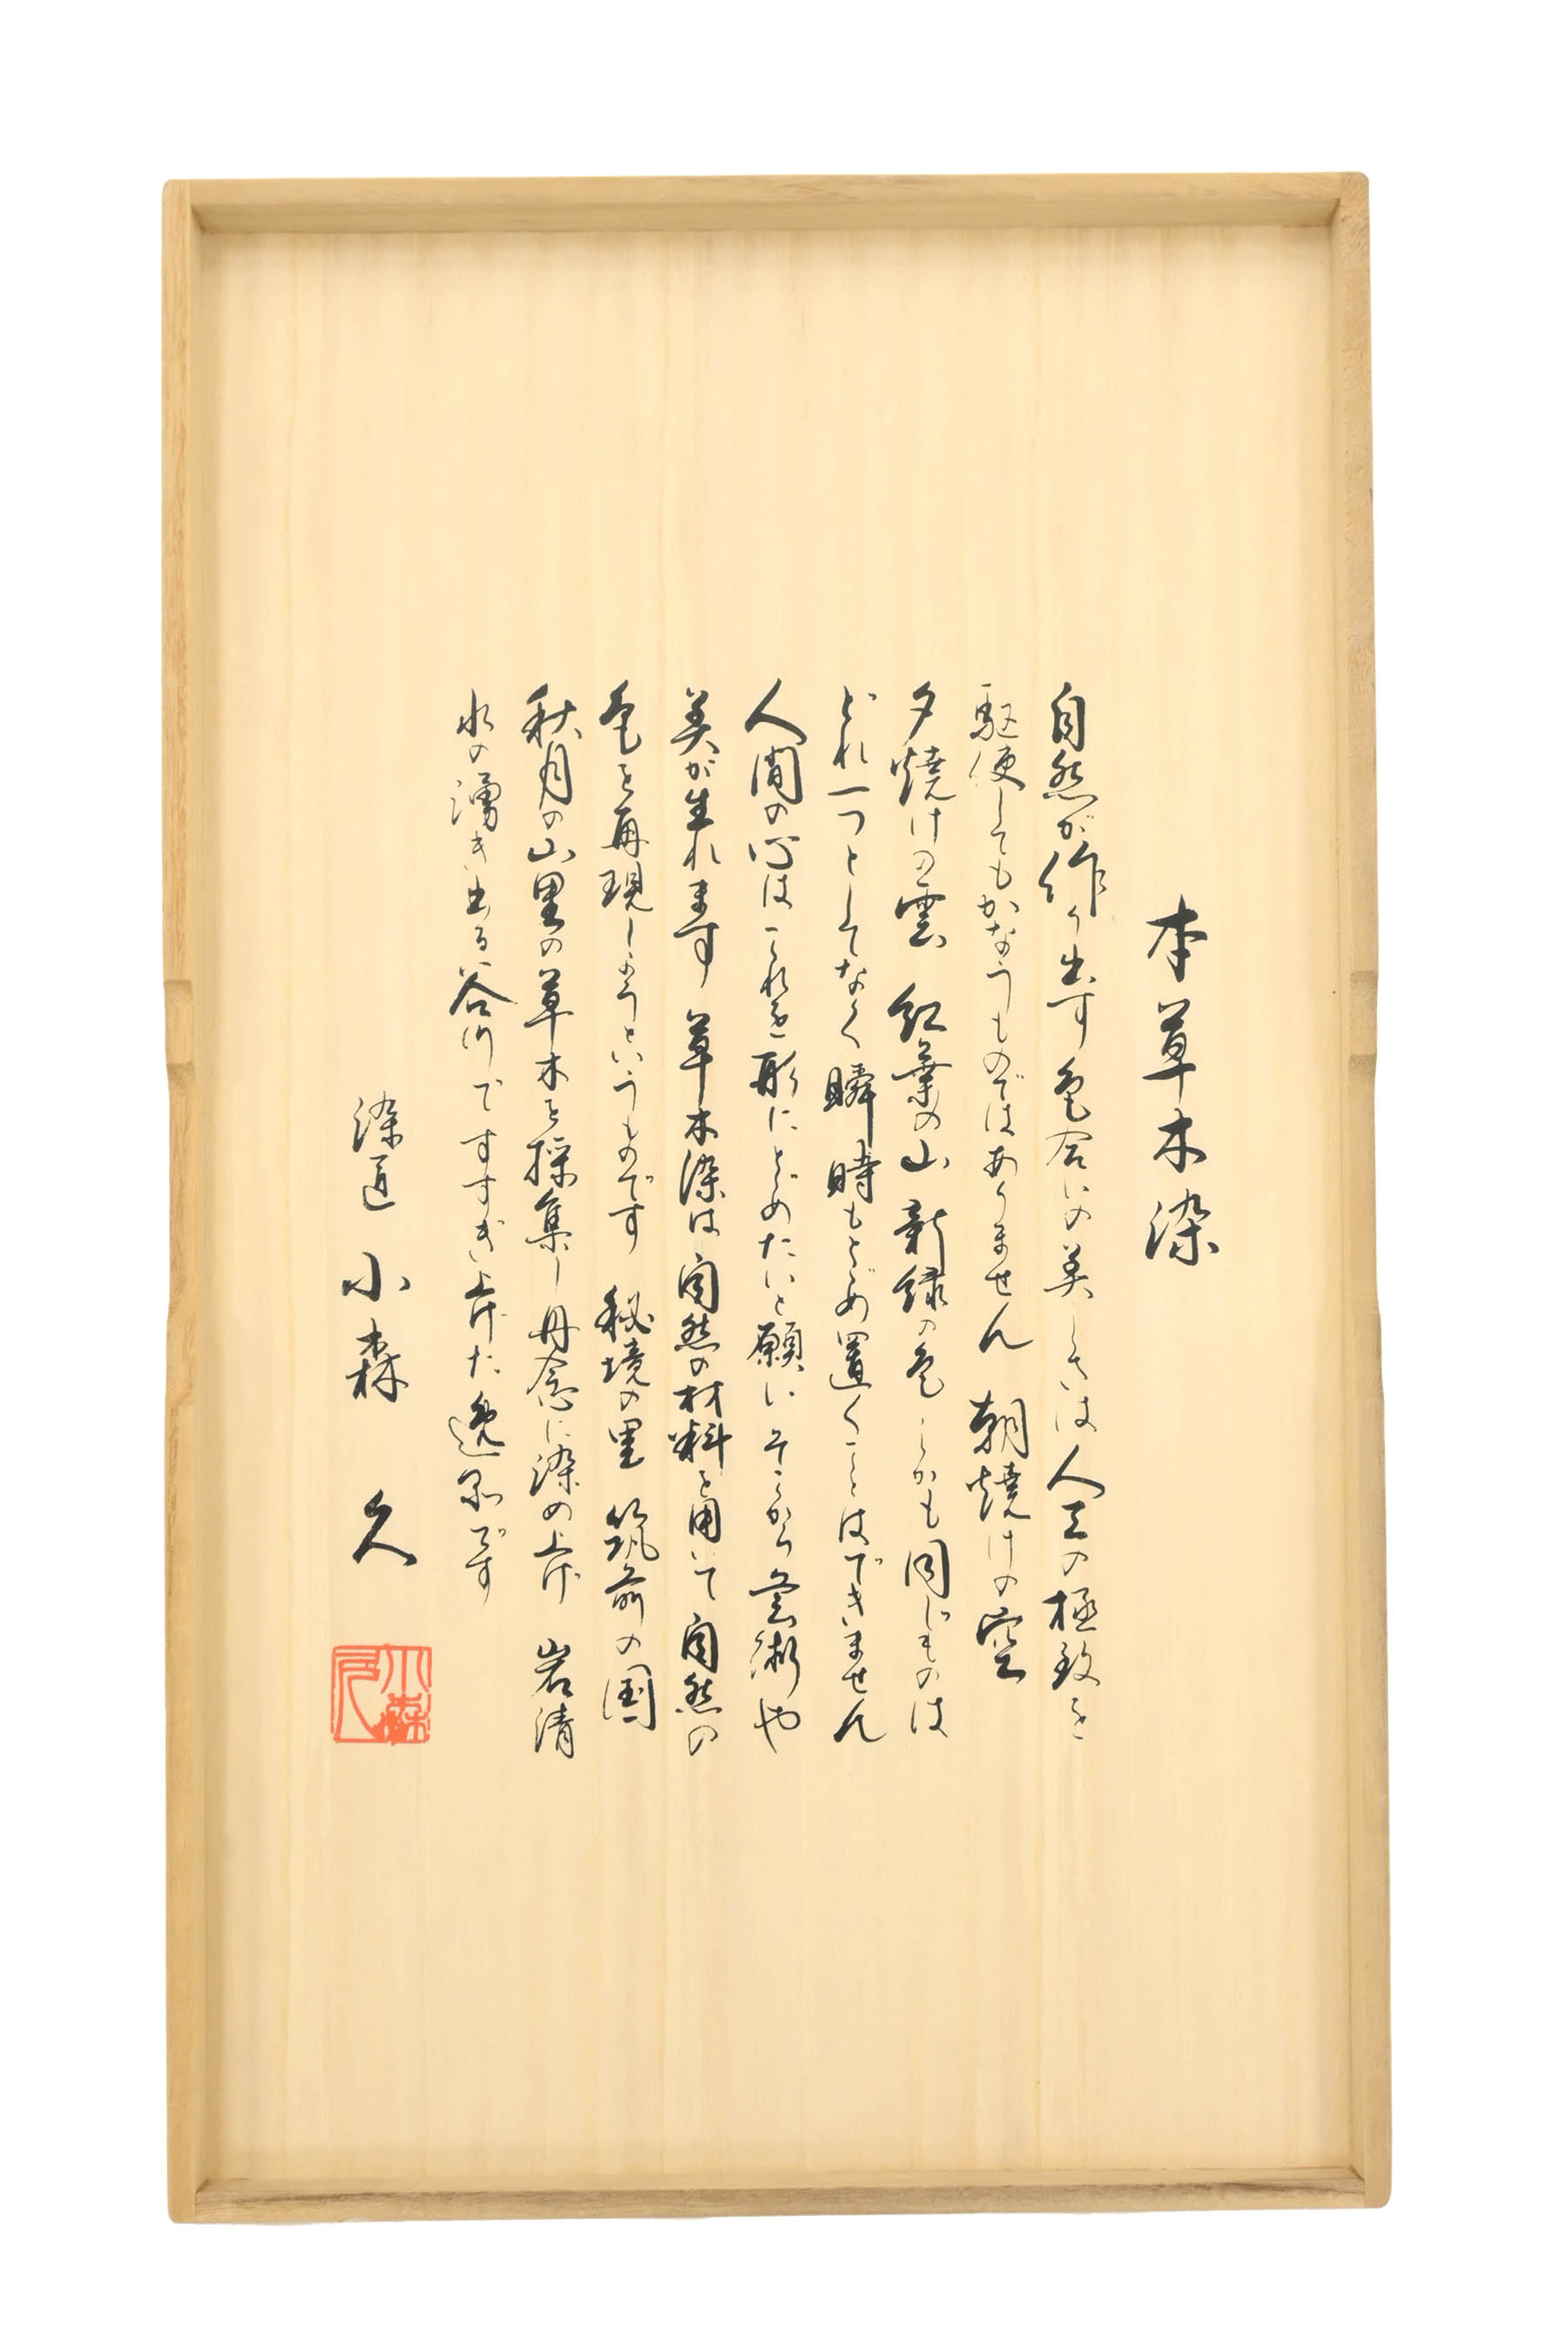 本草木染
自然が作り出す色合いの美しさは人工の極致を
駆使してもかなうものではありません 朝焼けの空
夕焼けの雲 紅葉の山 新緑の色 しかも同じものは
どれ一つとしてなく 瞬時もとどめ置くことはできません
人間の心はこれを形にとどめたいと願い そこから芸術や
美が生れます 草木染は自然の材料を用いて自然の
色を再現しようというものです 秘境の里 筑前の国
秋月の山里の草木を採集し丹念に染め上げ 岩清
水の湧き出る谷川ですすぎ上げた逸品です
染匠 小森 久
小森久